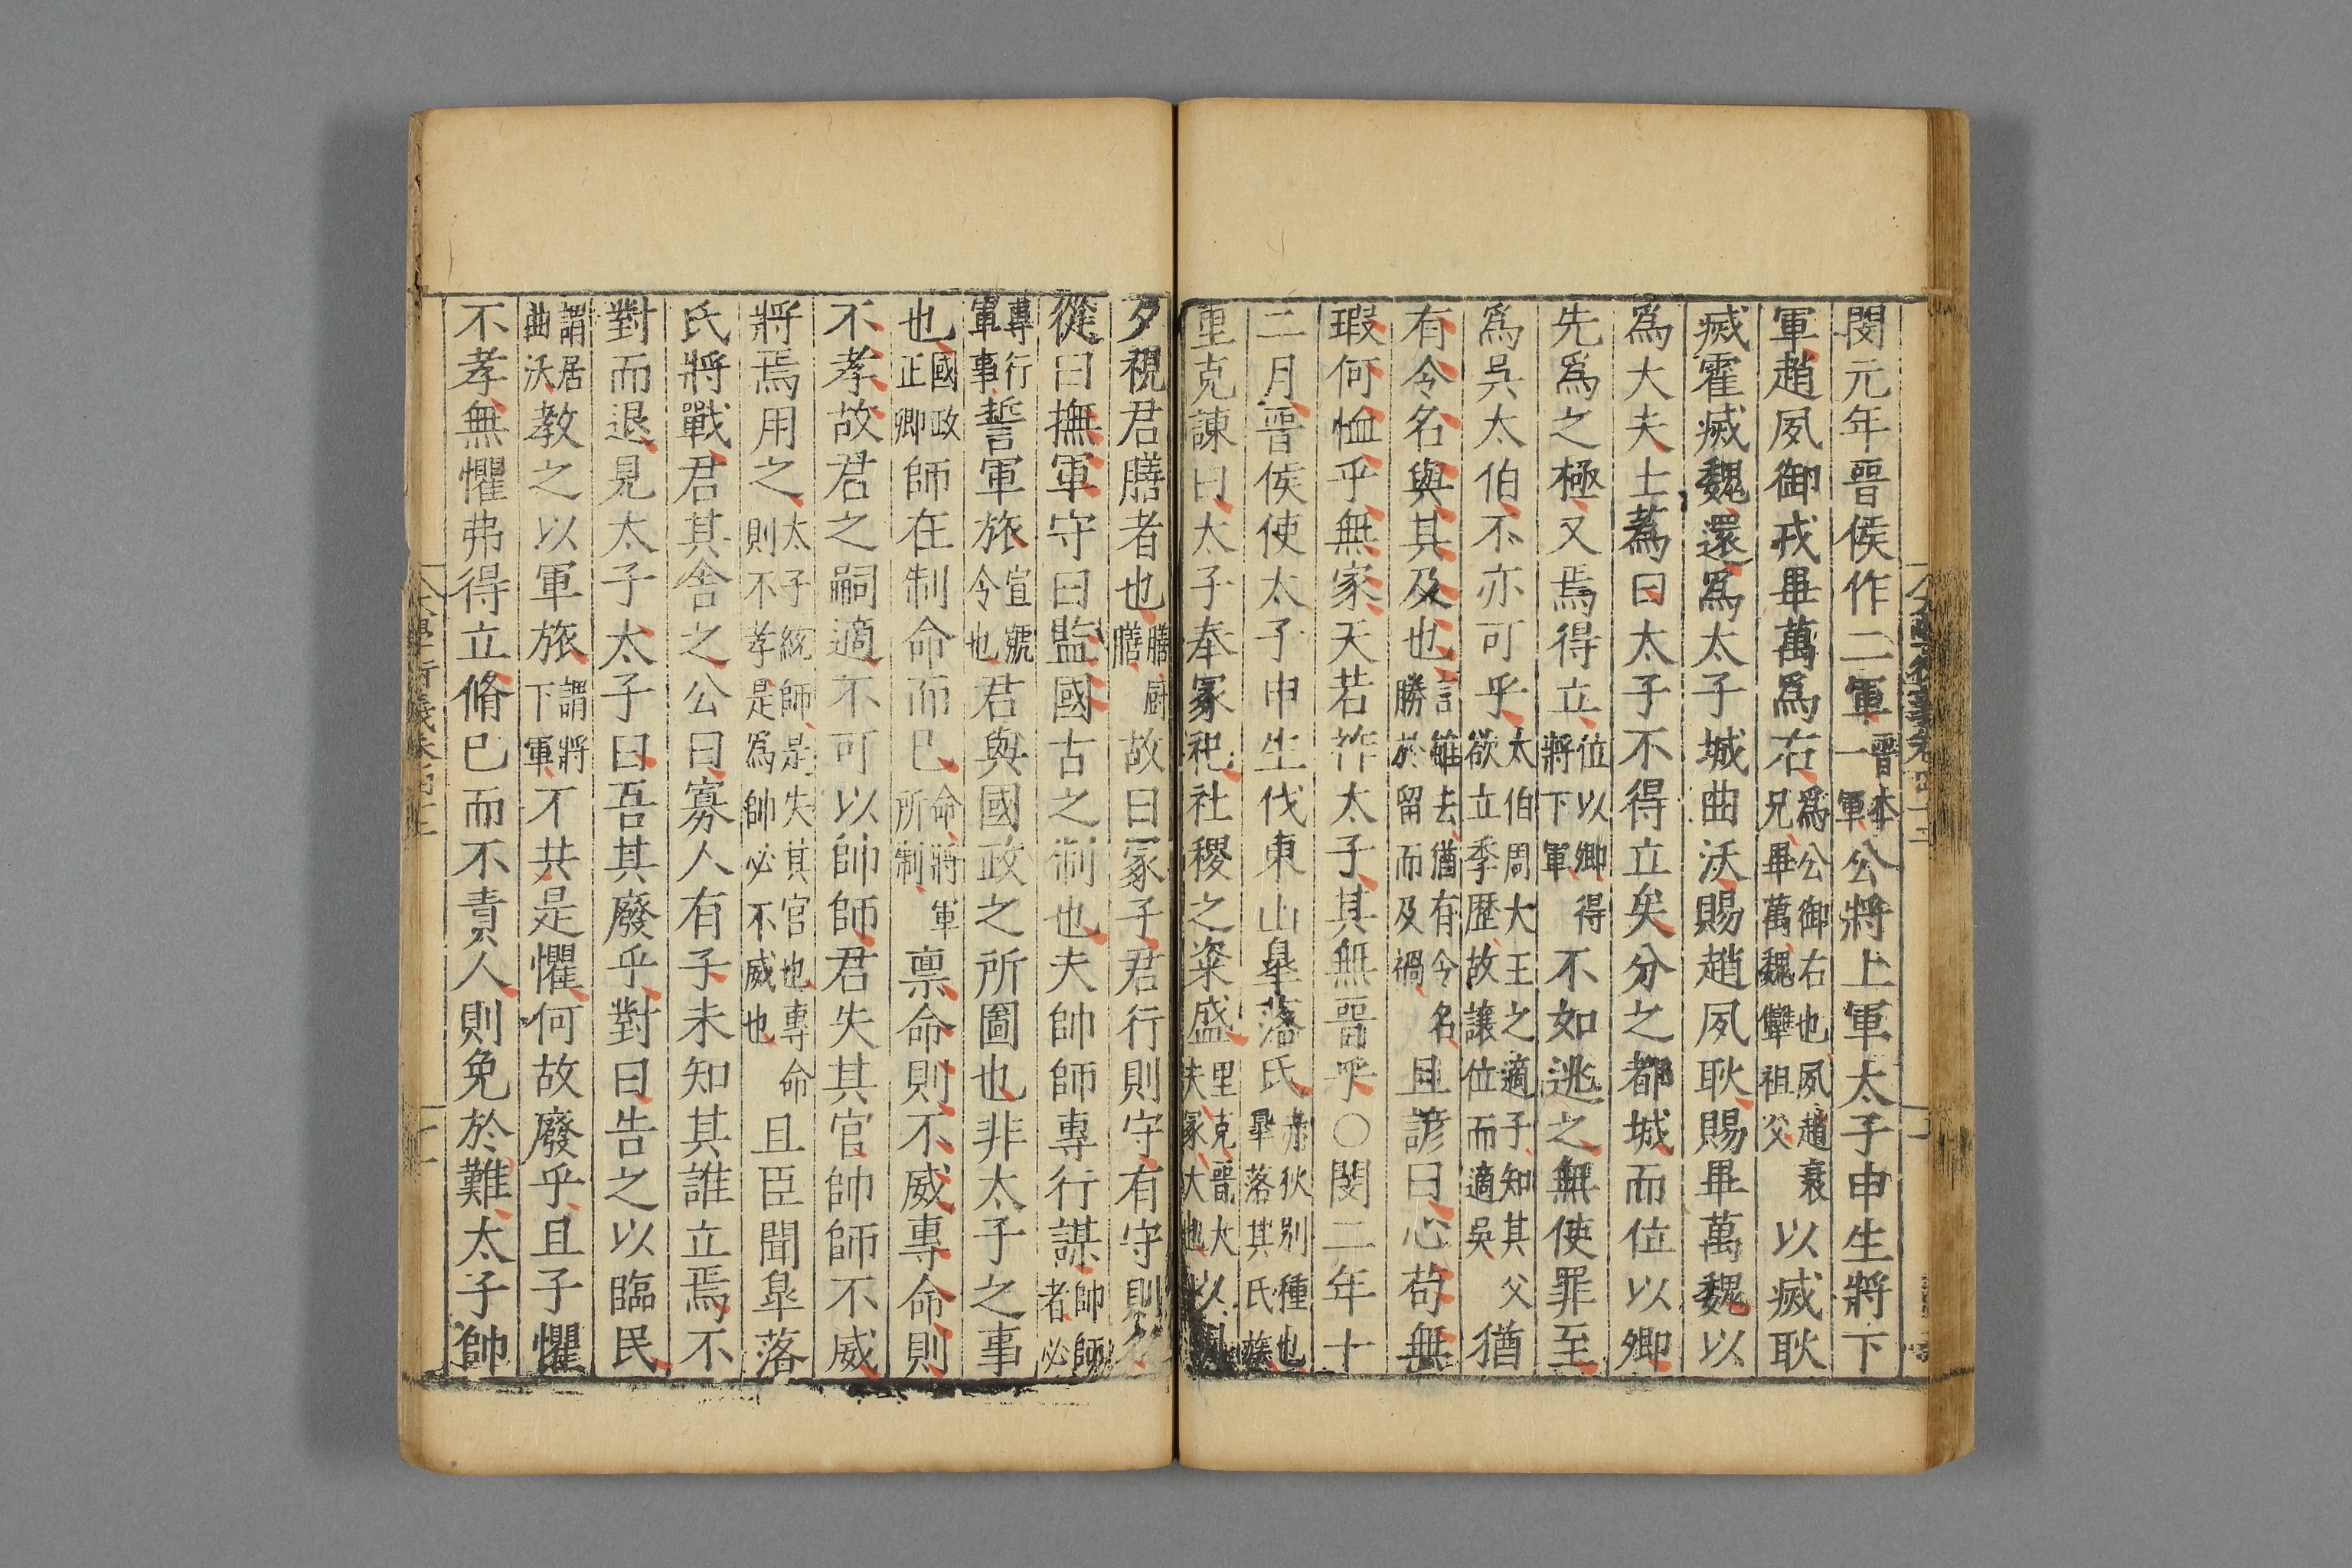 閔元年晉侯作二軍晉本一軍公將上軍太子申生將下
軍趙夙御戎畢萬爲右爲公御右也夙趙衰兄畢萬魏犨祖父以滅耿
滅霍滅魏還爲太子城曲沃賜趙夙耿賜畢萬魏以
爲大夫士蔿曰太子不得立矣分之都城而位以卿
先爲之極又焉得立位以卿得將下軍不如逃之無使罪至
爲吳太伯不亦可乎太伯周大王之適子知其父欲立季歷故讓位而適吳猶
有令名與其及也言雖去猶有令名勝於留而及禍且諺曰心苟無
瑕何恤乎無家天若祚太子其無晉乎○閔二年十
二月晉侯使太子申生伐東山皋落氏赤狄別種也皋落其氏族
里克諫曰太子奉冢祀社稷之粢盛里克晉大夫冢大也以朝
夕視君膳者也膳膳厨故曰冢子君行則守有守則從
從曰撫軍守曰監國古之制也夫帥師專行謀帥師者必
專行軍事誓軍旅宣號令也君與國政之所圖也非太子之事
也國政正卿師在制命而已命將軍所制禀命則不威專命則
不孝故君之嗣適不可以帥師君失其官帥師不威
將焉用之太子統師是失其官也專命則不孝是爲帥必不威也且臣聞皋落
氏將戰君其舍之公曰寡人有子未知其誰立焉不
對而退見太子太子曰吾其廢乎對曰告之以臨民
謂居曲沃教之以軍旅謂將下軍不共是懼何故廢乎且子懼
不孝無懼弗得立脩已而不責人則免於難太子帥